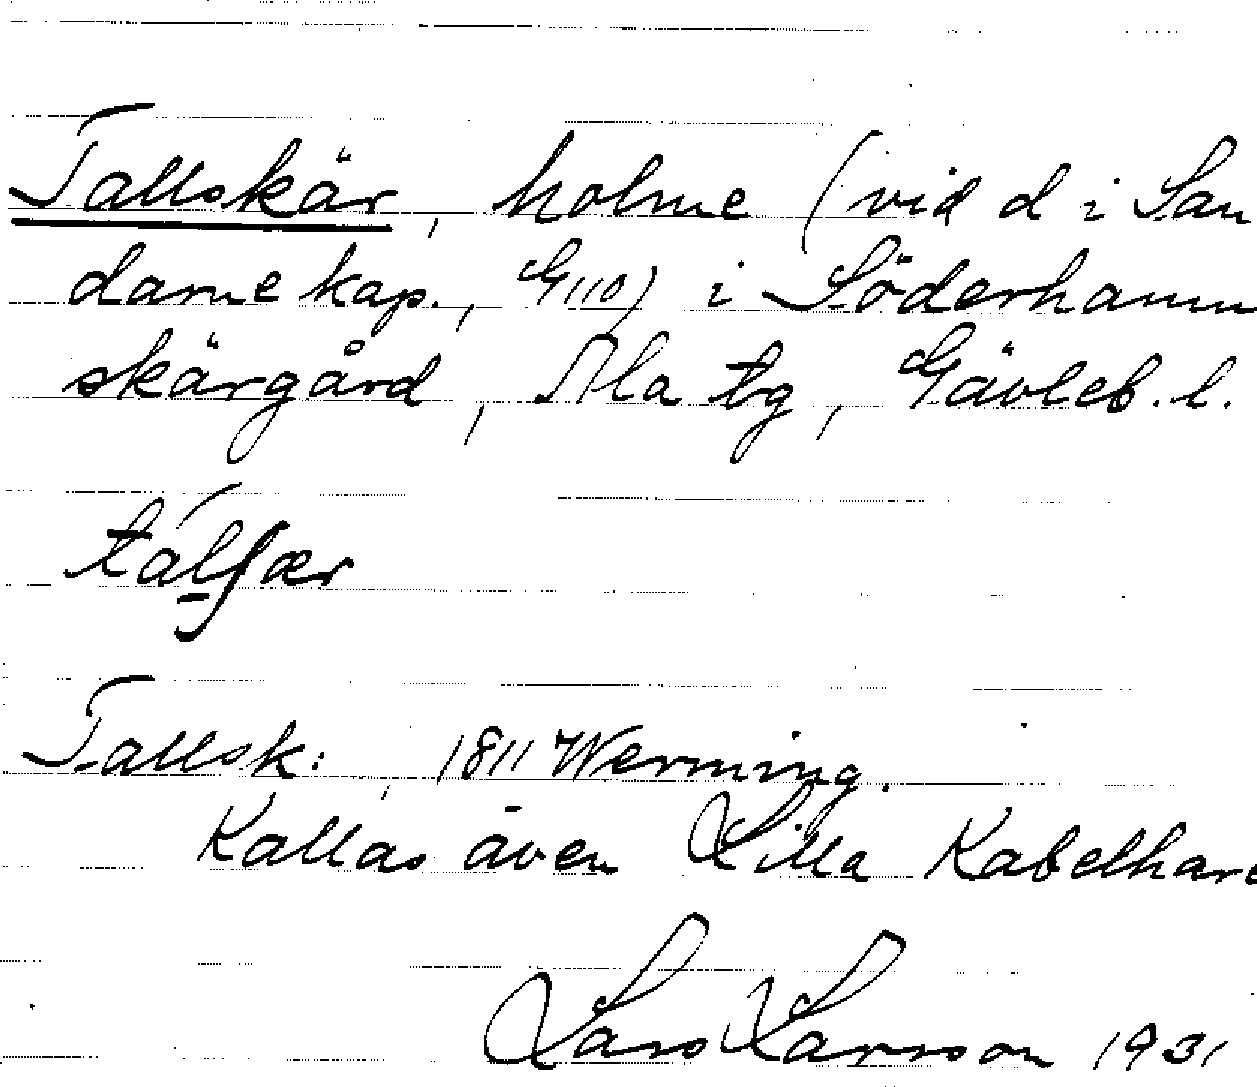 Tallskär, holme (vid d i San
darne kap., G110) i Söderhamn
skärgård, Ala tg, Gävleb. l.
Tallsk:, 1811 Werming.
Kallas även Lilla Kabelhar
Lars Larsson 1931